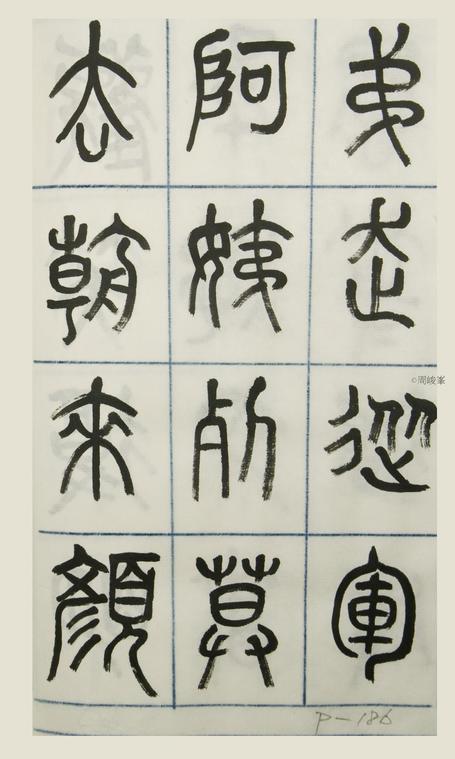 弟走從軍
阿姨死莫
去朝來顏
©周峻峯
P-186